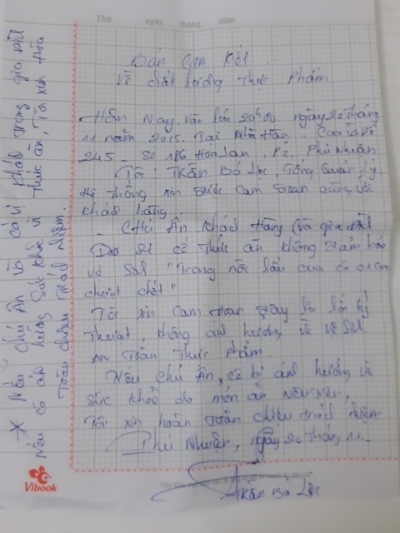 Thứ ngày tháng năm
Bản Cam Kết
Về chất lượng thực phẩm
Hôm Nay, vào lúc 20h00 ngày 20 tháng
11 năm 2015. Tại Nhà Hàng
245 - Số Hoa Lan, P2, Phú Nhuận
Tôi: Trần Bá Lộc, Tổng Quản Lý
Hệ thống xin được cam đoan cùng với
khách hàng.
- Chú Ân khách Hàng (và gia đình)
Do có thức ăn không đảm bảo
vệ sinh "Trong nồi lẩu của có con
chuột chết"
Tôi xin cam đoan đây là lỗi kỹ
thuật không ảnh hưởng về vệ sinh
An toàn thực phẩm.
Nếu chú Ân, có bị ảnh hưởng về
sức khoẻ do món ăn nêu trên,
Tôi xin hoàn toàn chịu trách nhiệm
Phú Nhuận, ngày 20 tháng 11
Trần Bá Lộc
* Nếu chú Ân và có vị khác trong gia đình
nếu có ảnh hưởng sức khoẻ vì thức ăn, Tôi xin hứa
Toàn chịu trách nhiệm.
Vibook